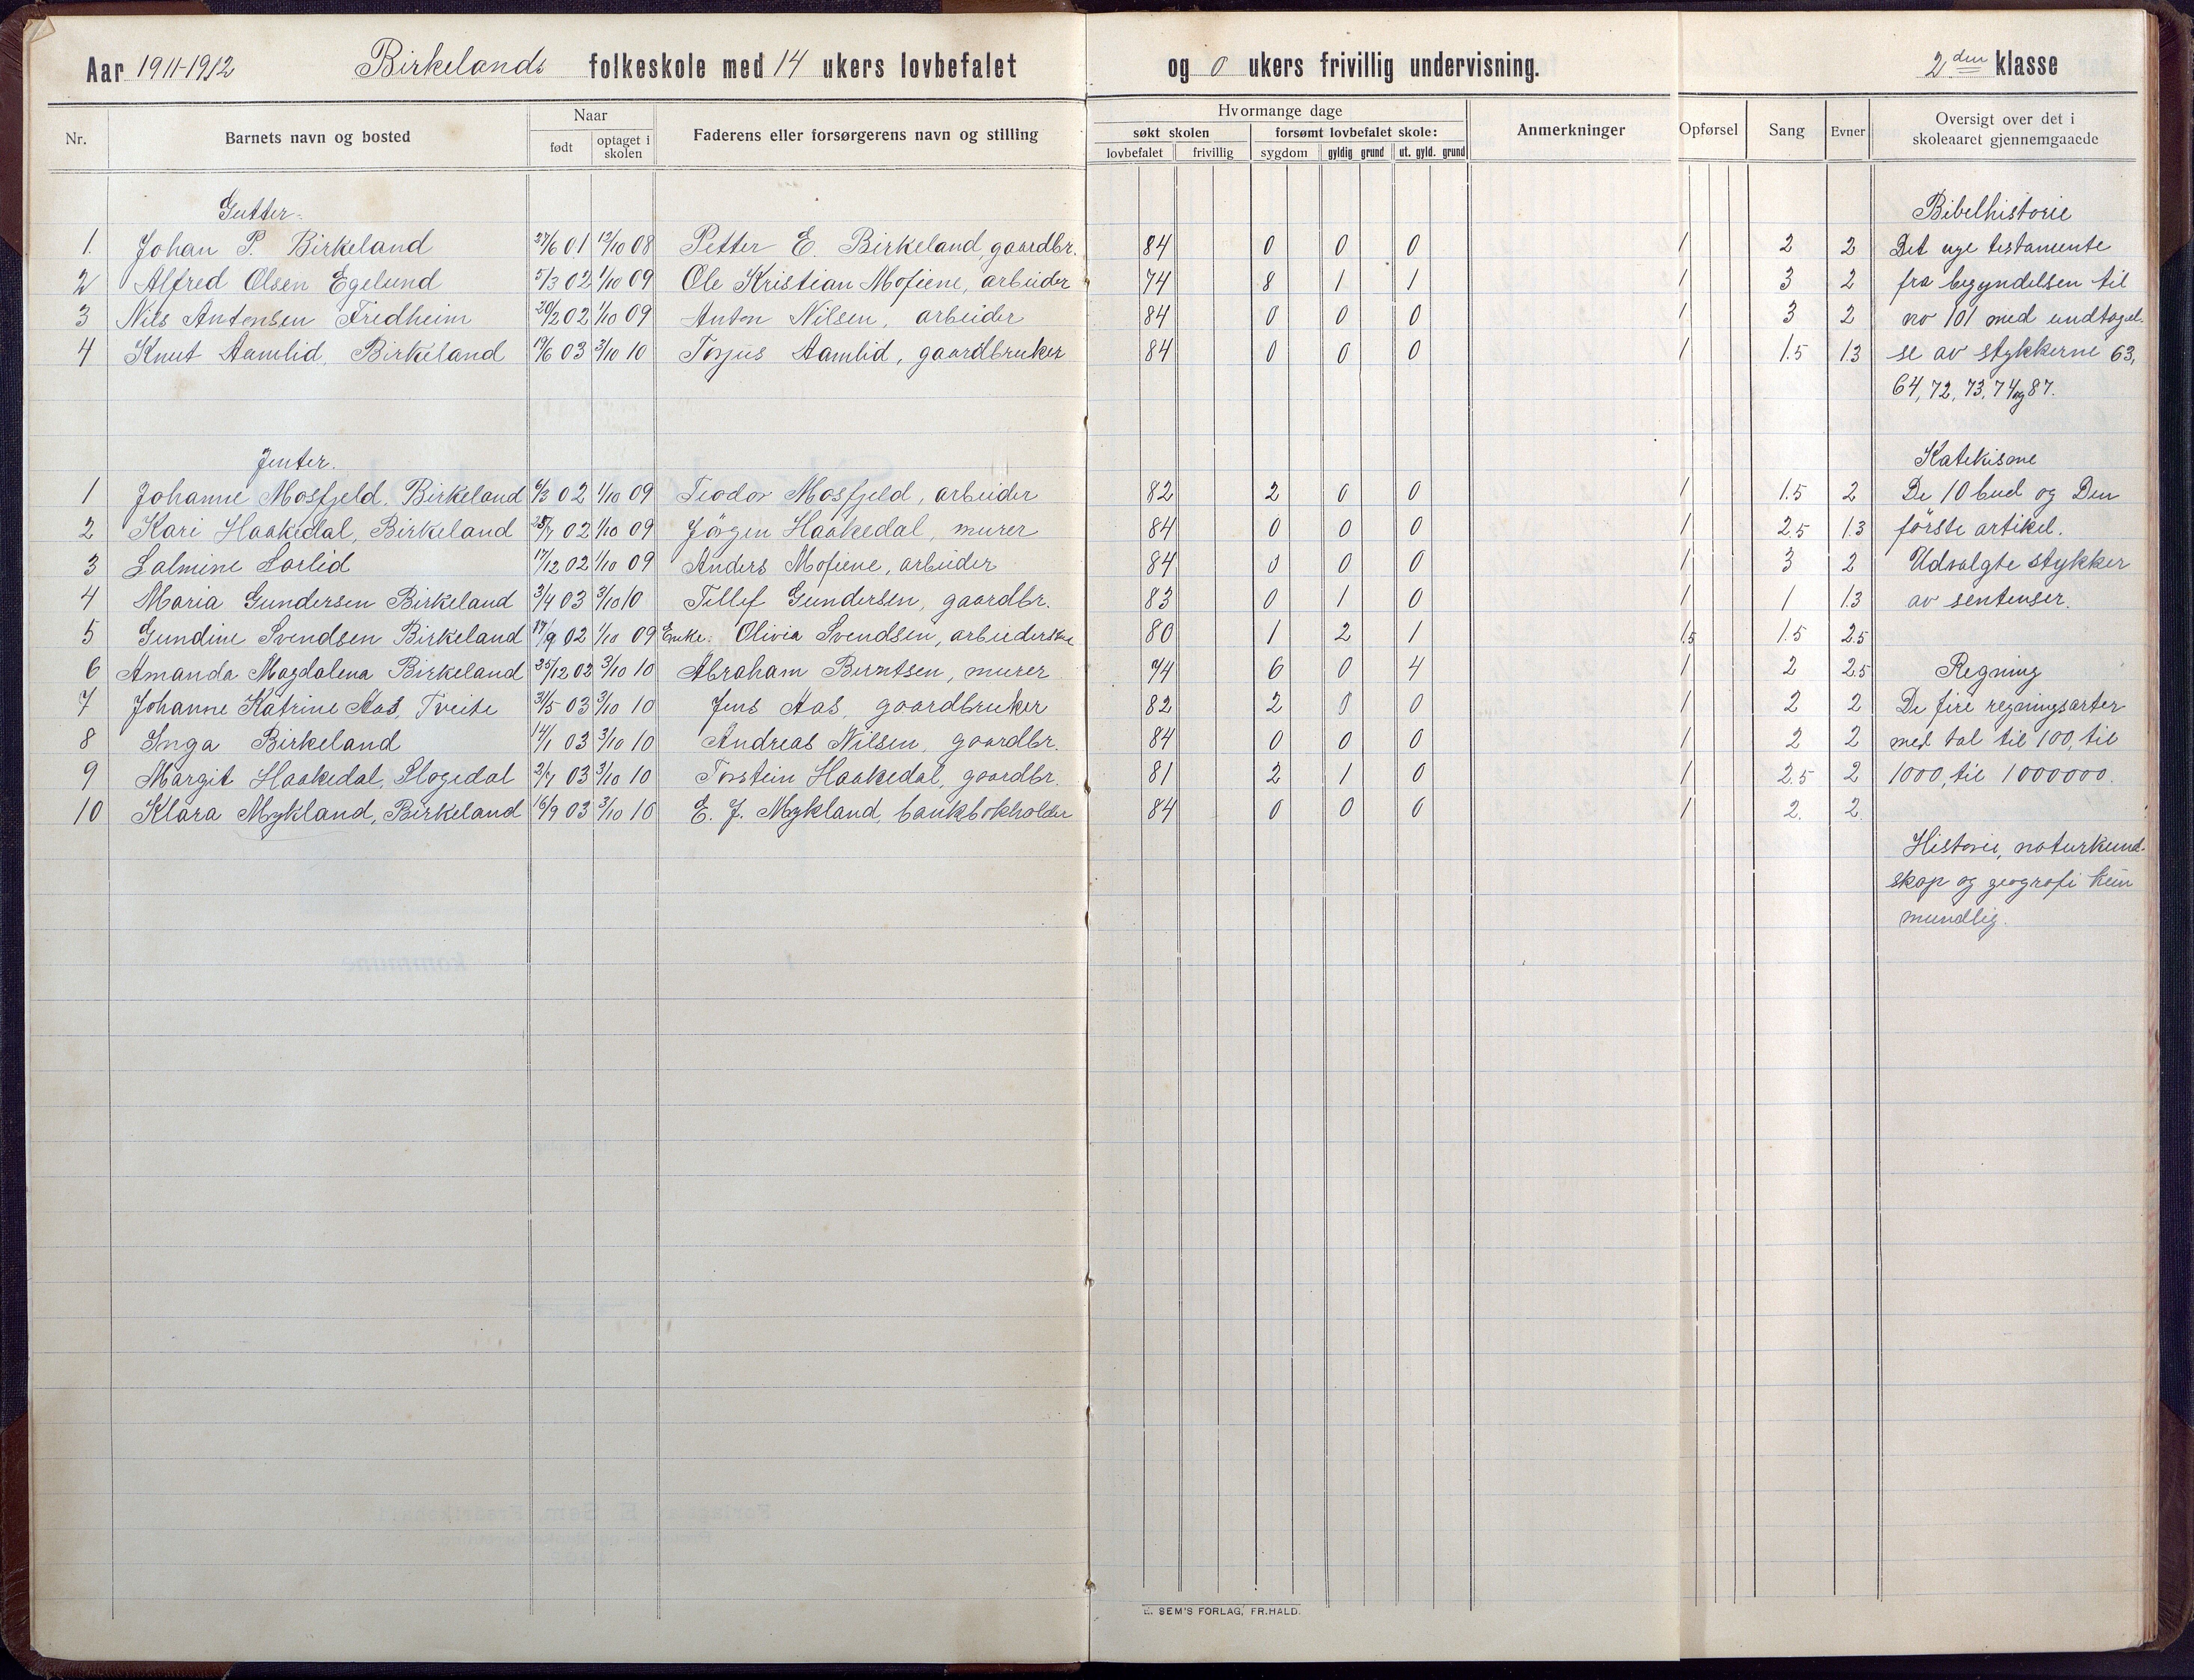 Aar 1911-1912 Birkelands folkeskole med 14 ukers lovbefalet og 0 ukers frivillig undervisning. 2den klasse
Nr. Barnets navn og bosted Naar født optaget i skolen Faderens eller forsørgerens navn og stilling Hvormange dage søkt skolen lovbefalet frivillig forsømt lovbefalet skole: sygdom gyldig grund ut. gyld. grund Anmerkninger Opførsel Sang Evner Oversigt over det i skoleaaret gjennemgaaede
Gutter. Bibelhistorie
1. Johan P. Birkeland 27/6 01 12/10 08 Petter E. Birkeland, gaardbr. 84 0 0 0 1 2 2 Det nye testamente
2 Alfred Olsen Egelund 5/3 02 1/10 09 Ole Kristian Mofiene, arbeider 74 8 1 1 1 3 2 fra begyndelsen til
3 Nils Antonsen Fredheim 20/2 02 1/10 09 Anton Nilsen, arbeider 84 0 0 0 1 3 2 no 101 med undtagel-
4 Knut Aamlid, Birkeland 19/6 03 3/10 10 Torjus Aamlid, gaardbruker 84 0 0 0 1 1.5 1.3 se av stykkerne 63,
64, 72, 73, 74 og 87.
Jenter. Katekisme
1 Johanne Mosfjeld, Birkeland 6/3 02 1/10 09 Teodor Mosfjeld, arbeider 82 2 0 0 1 1.5 2 De 10 bud og Den
2 Kari Haakedal, Birkeland 25/7 02 1/10 09 Jörgen Haakedal, murer 84 0 0 0 1 2.5 1.3 förste artikel.
3 Salmine Sorlid 17/12 02 1/10 09 Anders Mofiene, arbeider 84 0 0 0 1 3 2 Udvalgte stykker
4 Maria Gundersen Birkeland 3/4 03 3/10 10 Tellef Gundersen, gaardbr. 83 0 1 0 1 1 1.3 av sentenser.
5 Gundine Svendsen Birkeland 17/9 02 1/10 09 Enke. Olivia Svendsen, arbeiderske 80 1 2 1 1.5 1.5 2.5
6 Amanda Magdalena Birkeland 25/12 02 3/10 10 Abraham Berntsen, murer 74 6 0 4 1 2 2.5 Regning
7 Johanne Katrine Aas, Tveite 31/5 03 3/10 10 Jens Aas, gaardbruker 82 2 0 0 1 2 2 De fire regningsarter
8 Inga Birkeland 14/1 03 3/10 10 Andreas Nilsen, gaardbr. 84 0 0 0 1 2 2 med tal til 100, til
9 Margit Haakedal, Slogedal 2/7 03 3/10 10 Torstein Haakedal, gaardbr. 81 2 1 0 1 2.5 2 1000, til 1000000.
10 Klara Mykland, Birkeland 16/9 03 3/10 10 E. J. Mykland, bankbokholder 84 0 0 0 1 2. 2.
Historie, naturkund-
skap og geografi kun
mundlig.
E. SEM'S FORLAG, FR.HALD.